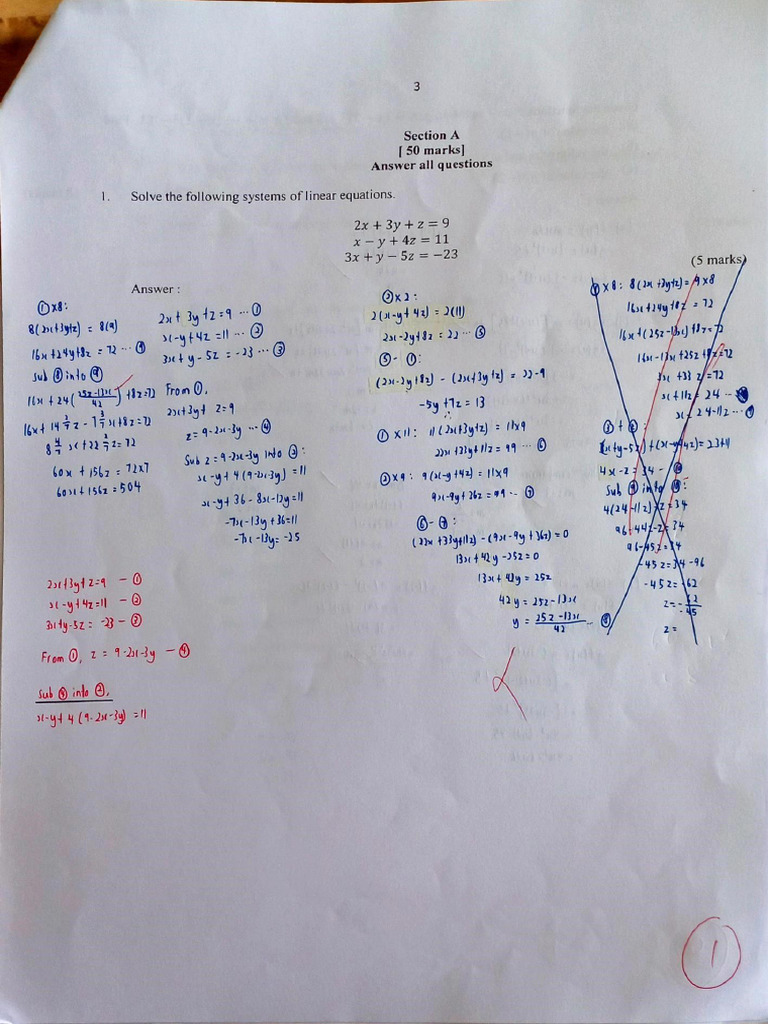 3
Section A
[ 50 marks]
Answer all questions
1. Solve the following systems of linear equations.
2x + 3y + z = 9
x − y + 4z = 11
3x + y − 5z = −23
(5 marks)
Answer :
① x8:
8(2x+3y+z) = 8(9)
16x+24y+8z = 72 ... ⑨
Sub ⑧ into ⑨
16x + 24(25z-13x/42)+8z=72
16x + 14 2/7 z - 7 3/7 x + 8z = 72
8 4/7 x + 22 2/7 z = 72
60x + 156z = 72x7
60x + 156z = 504
2x + 3y + z = 9 ... ①
x-y+4z = 11 ... ②
3x + y - 5z = -23 ... ③
From ①,
2x+3y+z=9
z = 9-2x-3y ... ④
Sub z = 9-2x-3y into ②:
x-y+4(9-2x-3y) = 11
x-y+36-8x-12y=11
-7x-13y+36=11
-7x-13y=-25
② x 2:
2(x-y+4z) = 2(11)
2x-2y+8z = 22 ... ⑤
⑤ - ①:
(2x-2y+8z) - (2x+3y+z) = 22-9
-5y+7z = 13
① x 11: 11(2x+3y+z) = 11x9
22x+33y+11z = 99 ... ⑥
② x 9: 9(x-y+4z) = 11x9
9x-9y+36z = 99 ... ⑦
⑥ - ⑦:
(22x+33y+11z) - (9x-9y+36z) = 0
13x+42y-25z=0
13x+42y = 25z
42y = 25z-13x
y = 25z-13x/42 ... ⑧
x8: 8(2x+3y+z) = 9x8
16x+24y+8z = 72
16x+(25z-13x)+8z=72
16x-13x+25z+8z=72
3x+33z=72
x+11z = 24
x = 24-11z
(3x+y-5z)+(x-y+4z)=23+11
4x-z = 34
Sub into
4(24-11z)-z=34
96-44z-z=34
96-45z=34
-45z=34-96
-45z=-62
z=-62/45
z=
2x+3y+z=9 - ①
x-y+4z=11 - ②
3x+y-5z=-23 - ③
From ①, z = 9-2x-3y - ④
Sub ④ into ②,
x-y+4(9-2x-3y) =11
1